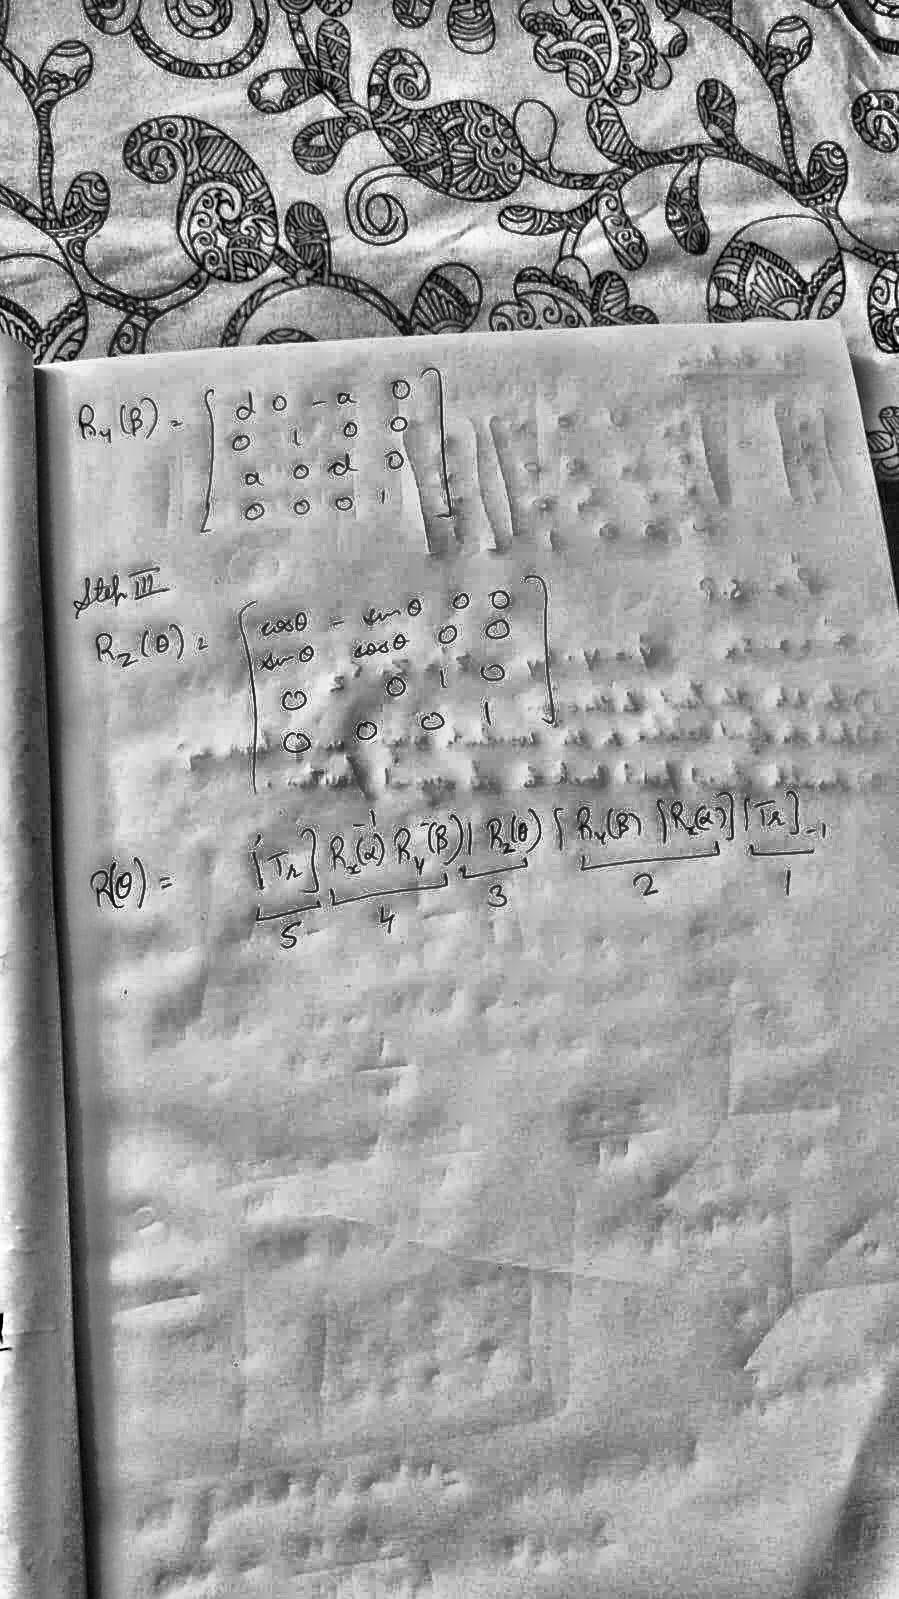 Ry(β) = [ d 0 -a 0
0 1 0 0
a 0 d 0
0 0 0 1 ]
Step III
Rz(θ) = [ cosθ - sinθ 0 0
sinθ cosθ 0 0
0 0 1 0
0 0 0 1 ]
R(θ) = [Tr] Rx⁻¹(α) Ry⁻(β) | Rz(θ) [ Ry(β) [Rx(α)] [Tr]-1
5 4 3 2 1